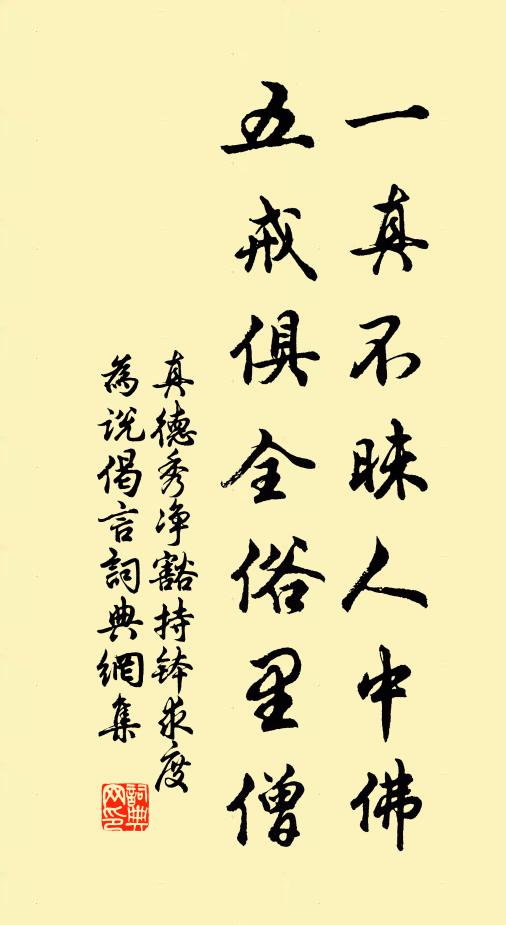 一真不昧人中佛
五戒俱全俗里僧
真德秀净豁持钵求度
為说偈言詞典網集
詞典
网印